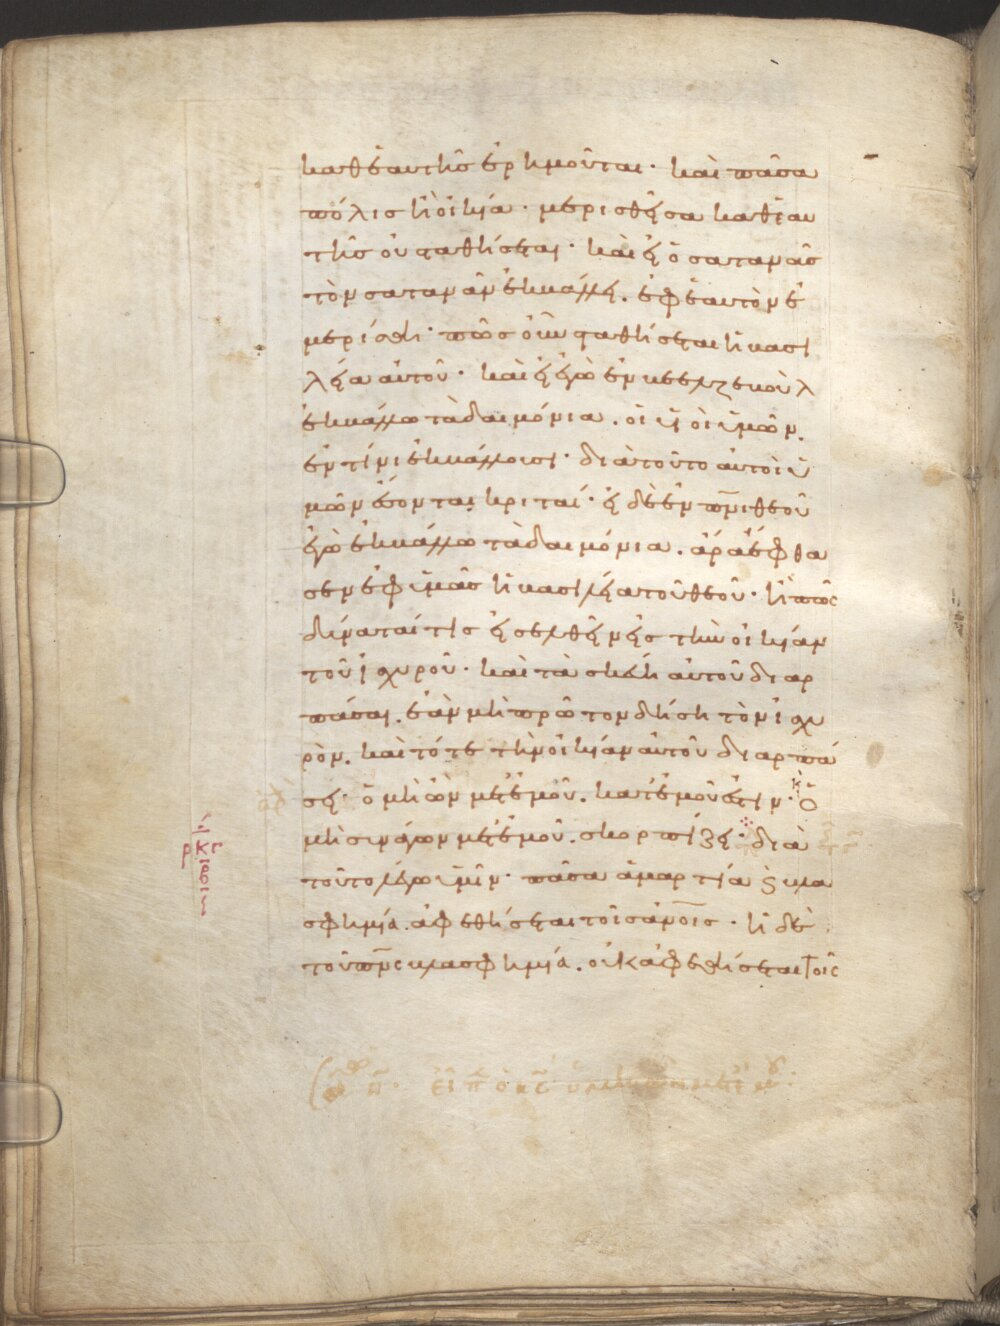 καθ ἑαυτῆς ἐρημοῦται· καὶ πᾶσα
πόλις ἢ οἰκία· μερισθεῖσα καθ ἑαυ
τῆς οὐ σταθήσεται· καὶ εἰ ὁ σατανᾶς
τὸν σατανᾶν ἐκβάλλει. ἐφ ἑαυτὸν ἐ
μερίσθη· πῶς οὖν σταθήσεται ἡ βασι
λεία αὐτοῦ· καὶ εἰ ἐγὼ ἐν βεελζεβοὺλ
ἐκβάλλω τὰ δαιμόνια. οἱ υἱοὶ ὑμῶν.
ἐν τίνι ἐκβάλλουσι· διὰ τοῦτο αὐτοὶ ὑ
μῶν ἔσονται κριταί· εἰ δὲ ἐν πνι θεοῦ
ἐγὼ ἐκβάλλω τὰ δαιμόνια. ἄρα ἔφθα
σεν ἐφ ὑμᾶς ἡ βασιλεία τοῦ θεοῦ· ἢ πῶς
δύναταί τις εἰσελθεῖν εἰς τὴν οἰκίαν
τοῦ ἰσχυροῦ· καὶ τὰ σκεύη αὐτοῦ διαρ
πάσαι. ἐὰν μὴ πρῶτον δήσῃ τὸν ἰσχυ
ρὸν. καὶ τότε τὴν οἰκίαν αὐτοῦ διαρπά
σει· ὁ μὴ ὢν μετ ἐμοῦ. κατ ἐμοῦ ἐστιν· κ ὁ
μὴ συνάγων μετ ἐμοῦ. σκορπίζει· διὰ
τοῦτο λέγω ὑμῖν· πᾶσα ἁμαρτία ϗ βλα
σφημία. ἀφεθήσεται τοῖς ἀνοις· ἡ δὲ
τοῦ πνς βλασφημία. οὐκ ἀφεθήσεται τοῖς
εἶπ ὁ κς ὁ μὴ ὢν μετ ἐμοῦ: